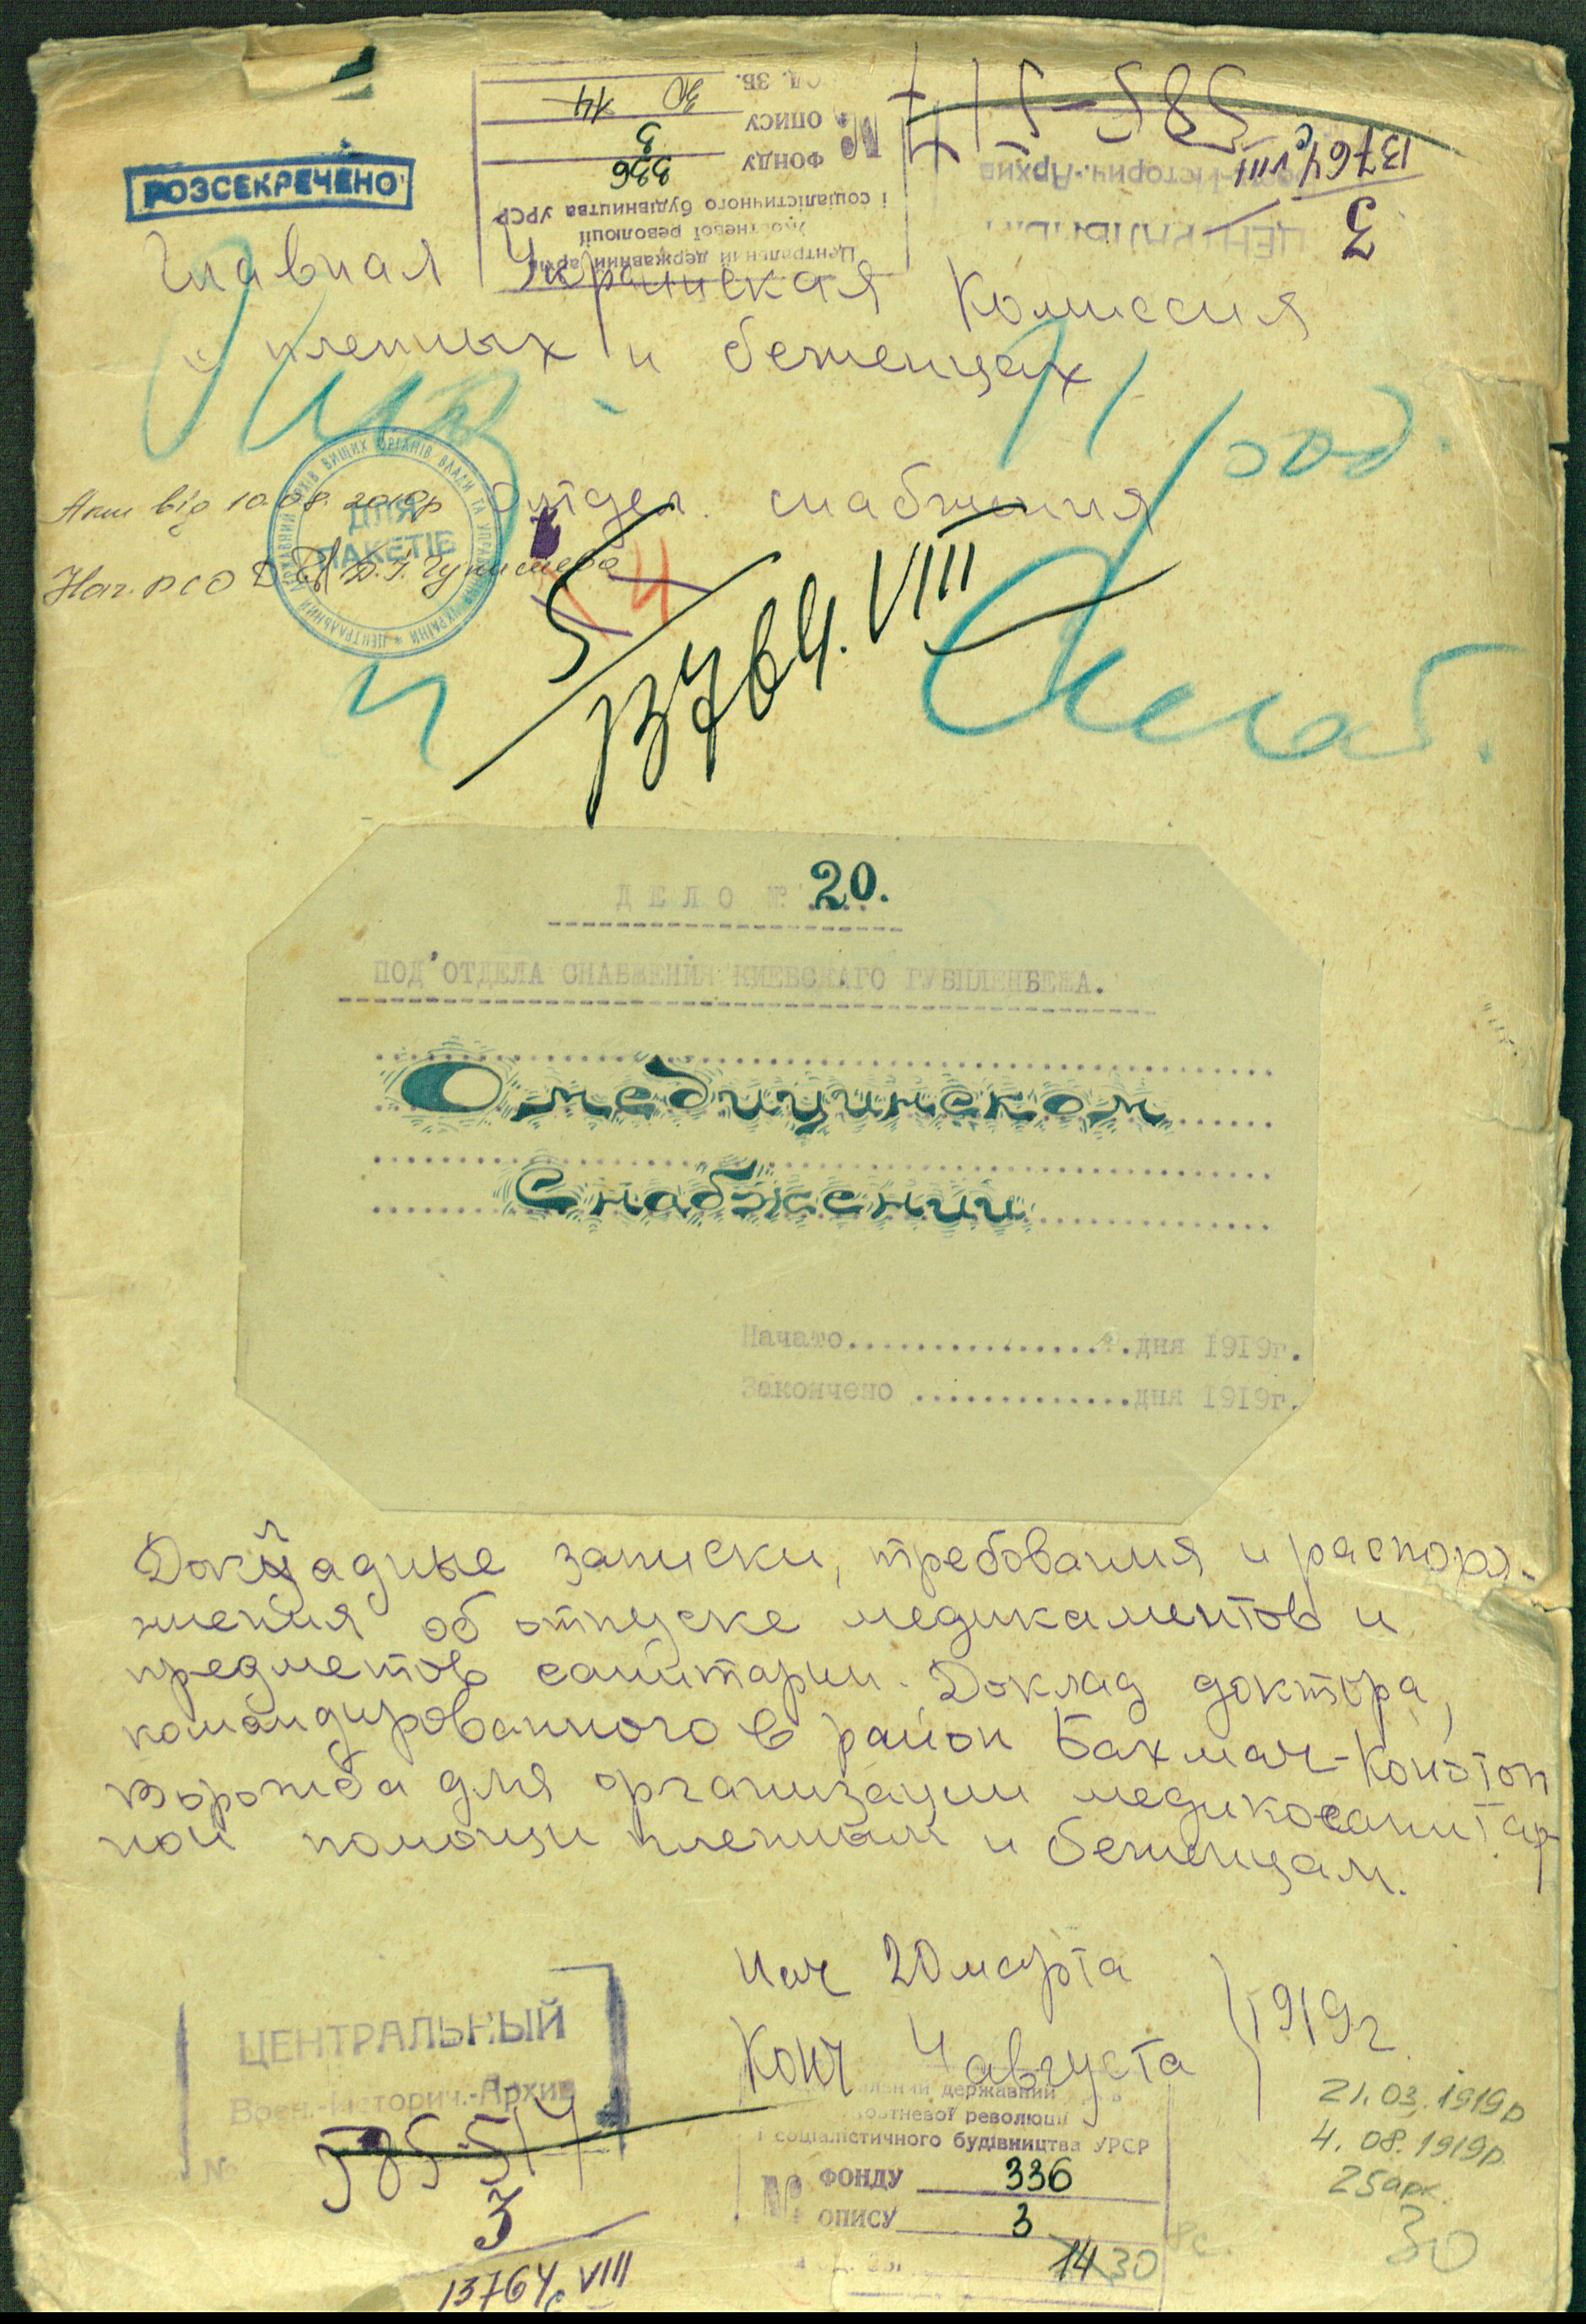 РОЗСЕКРЕЧЕНО
Центральний державний архів
Жовтневої революції
і соціалістичного будівництва УРСР
№ ФОНДУ 336
ОПИСУ 3
ОД. ЗБ. 30 14
585-514
3
13764с VIII
ЦЕНТРАЛЬНЫЙ
Воен.-Историч.-Архив
Главная Украинская Комиссия
о пленных и беженцах
Отдел снабжения
Акт від 10.08.2019р
Нач. РСО
ЦЕНТРАЛЬНИЙ ДЕРЖАВНИЙ АРХІВ ВИЩИХ ОРГАНІВ ВЛАДИ ТА УПРАВЛІННЯ УКРАЇНИ
ДЛЯ
ПАКЕТІВ
14
5
13764.VIII
Снаб.
ДЕЛО № 20.
ПОД'ОТДЕЛА СНАБЖЕНИЯ КИЕВСКАГО ГУБПЛЕНБЕЖА.
О медицинском
Снабжении
Начато.................дня 1919г.
Закончено .............дня 1919г.
Докладные записки, требования и распоря-
жения об отпуске медикаментов и
предметов санитарии. Доклад доктора,
командированного в район Бахмач-Конотоп
Ворожба для организации медикосанитар-
ной помощи пленным и беженцам.
Нач 20 марта
Конч 4 августа
1919г.
ЦЕНТРАЛЬНЫЙ
Воен.-Историч.-Архив
№ 585-514
3
13764с VIII
державний
Жовтневої революції
і соціалістичного будівництва УРСР
№ ФОНДУ 336
ОПИСУ 3
14 30
21.03.1919р
4.08.1919р.
25арк.
30